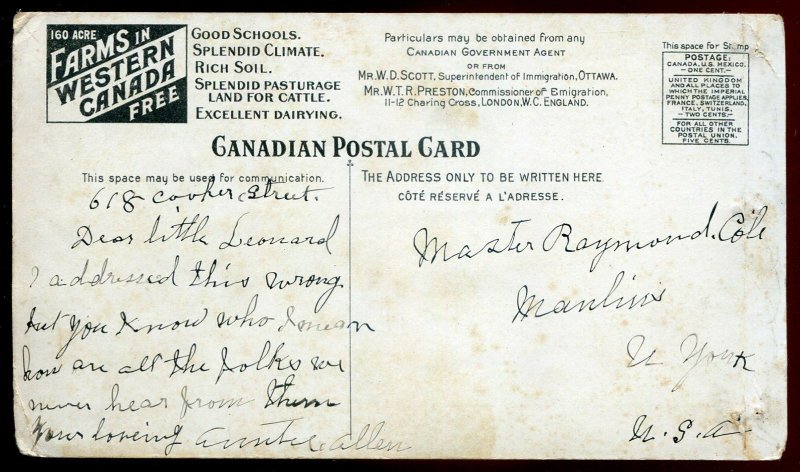 160 ACRE
FARMS IN
WESTERN
CANADA
FREE
GOOD SCHOOLS.
SPLENDID CLIMATE.
RICH SOIL.
SPLENDID PASTURAGE
LAND FOR CATTLE.
EXCELLENT DAIRYING.
Particulars may be obtained from any
CANADIAN GOVERNMENT AGENT
OR FROM
MR. W.D. SCOTT, Superintendent of Immigration, OTTAWA.
MR. W.T.R. PRESTON, Commissioner of Emigration,
11-12 Charing Cross, LONDON, W.C. ENGLAND.
This space for Stamp
POSTAGE:
CANADA, U.S. MEXICO.
—ONE CENT.—
UNITED KINGDOM
AND ALL PLACES TO
WHICH THE IMPERIAL
PENNY POSTAGE APPLIES,
FRANCE, SWITZERLAND,
ITALY, TUNIS.
—TWO CENTS.—
FOR ALL OTHER
COUNTRIES IN THE
POSTAL UNION.
FIVE CENTS.
CANADIAN POSTAL CARD
This space may be used for communication.
618 Street.
Dear little Leonard
I addressed this wrong
but you know who I mean
how are all the folks we
never hear from them
Your loveing auntie allen
THE ADDRESS ONLY TO BE WRITTEN HERE
CÔTÉ RÉSERVÉ A L'ADRESSE.
Master Raymond. Cole
Manlius
N York
U. S. A